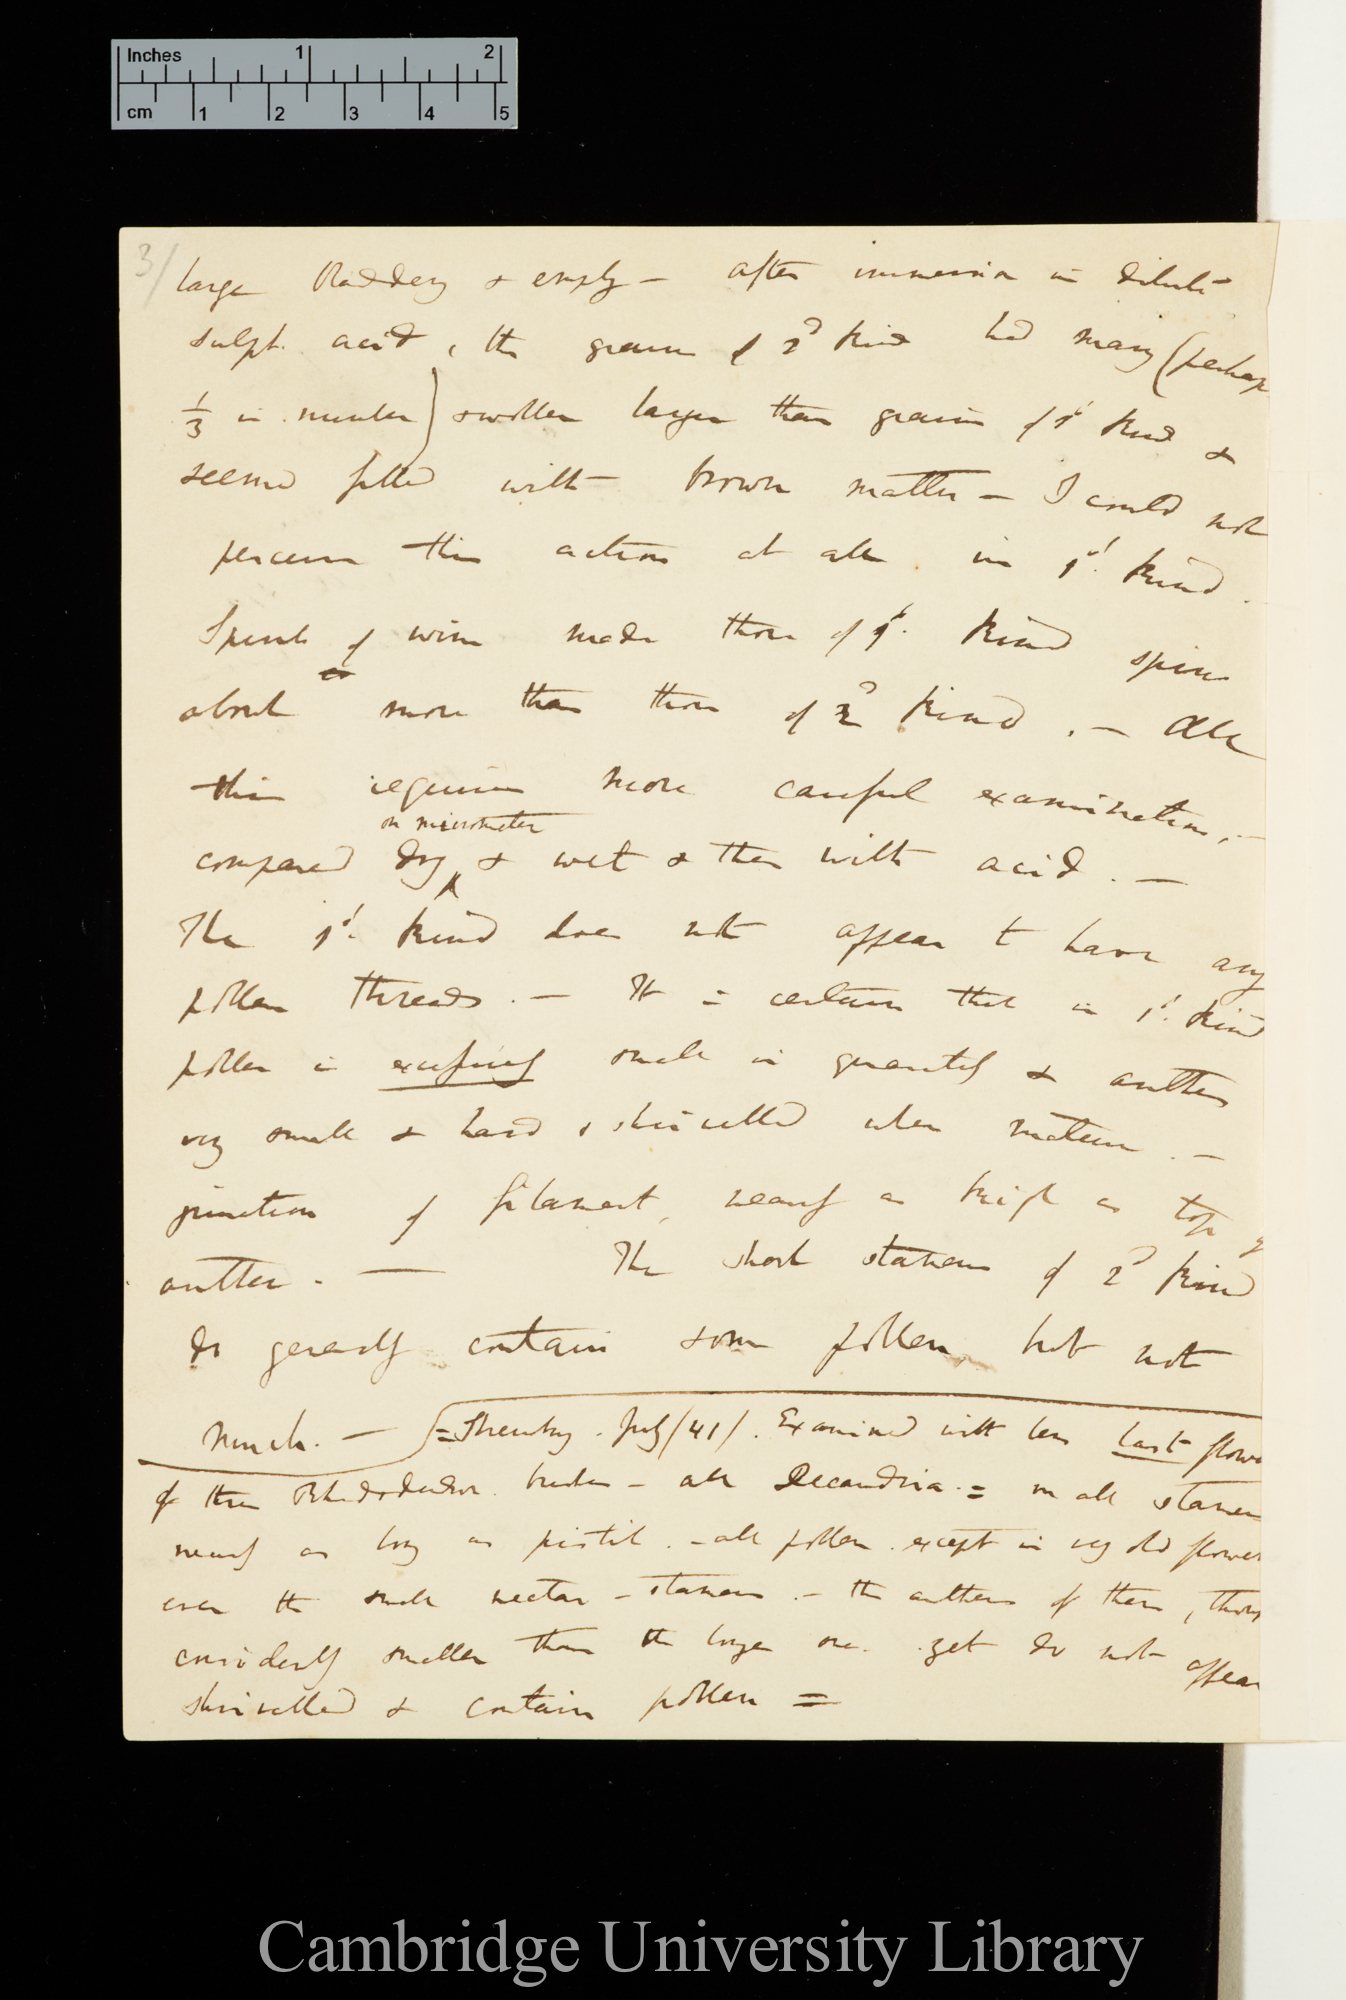 Inches 1 2
cm 1 2 3 4 5
3/
large Bladdery & empty — after immersion in dilute
sulph. acid, the grains of 2d kind had many (perhaps
1/3 in number) swollen larger than grains of 1st kind &
seemed filled with brown matter — I could not
perceive this action at all in 1st kind.
Spirits of wine made those of 1st. kind spin
about more than those of 2d kind. — All
this requires more careful examination, —
on micrometer
compared dry & wet & then with acid. —
The 1st. kind does not appear to have any
pollen threads. — It is certain that in 1st. kind
pollen is excessively small in quantity & anthers
very small & hard & shrivelled when mature. —
junction of filament, nearly as high as top of
anther. — The short stamens of 2d kind
do generally contain some pollen, but not
much. — = Shrewsbury. July /41/. Examined with lens last flowers
of three Rhododendron bushes — all Decandria. = in all stamens
nearly as long as pistil. — all pollen except in very old flowers
even the small nectar-stamens. — the anthers of them, though
considerably smaller than the larger one. yet do not appear
shrivelled & contain pollen =
Cambridge University Library